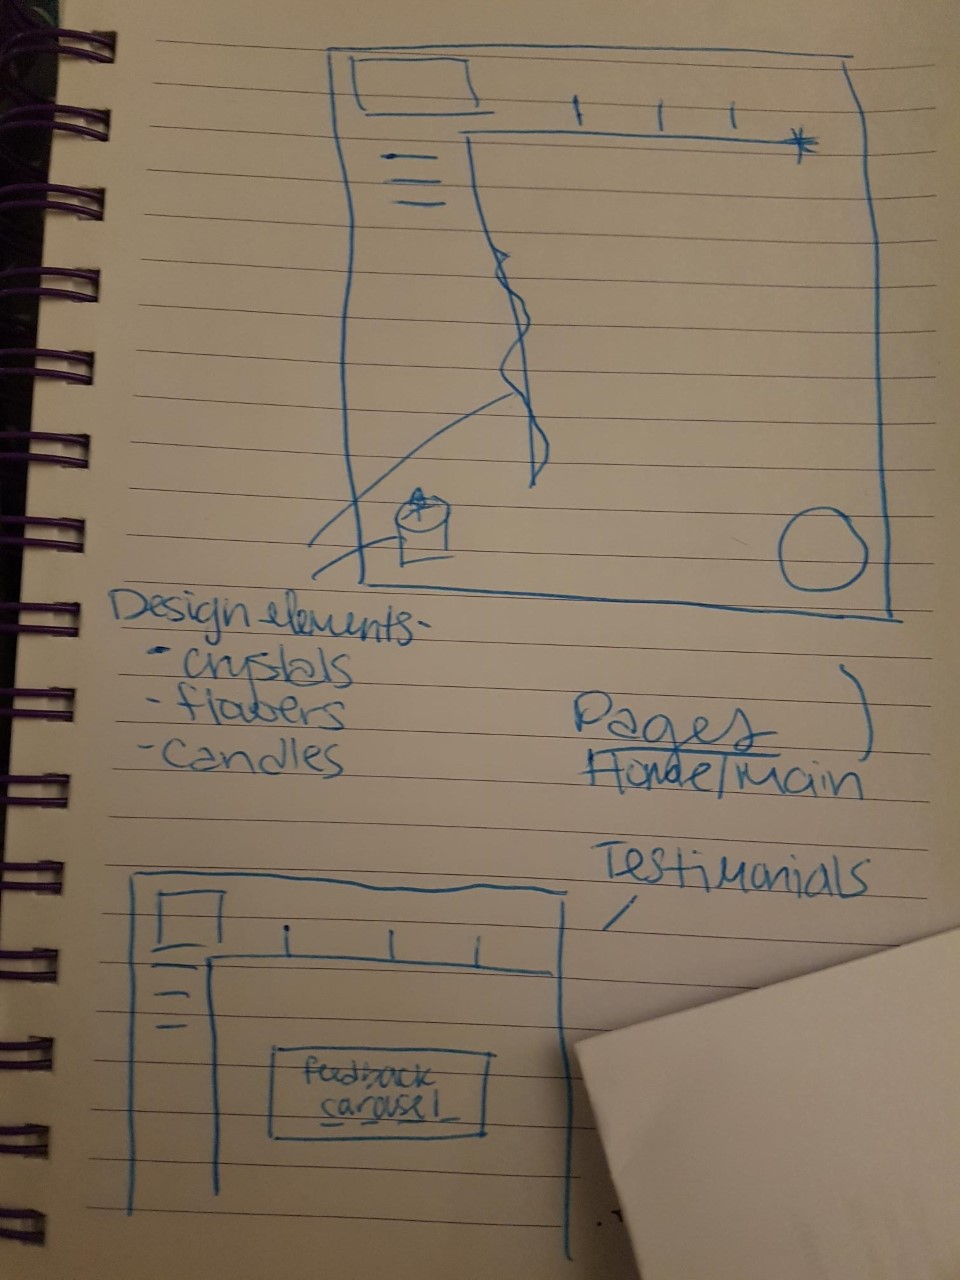 Design elements-
- crystals
- flowers
- candles
Pages
Home/main
Testimonials
feedback
carousel